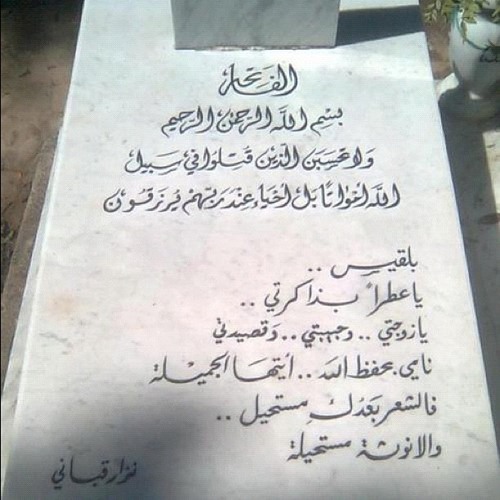 الفاتحة
بسم الله الرحمن الرحيم
ولا تحسبن الذين قتلوا في سبيل
الله امواتا بل احياء عند ربهم يرزقون
بلقيس ..
يا عطراً بذاكرتي ..
يا زوجتي .. وحبيبتي .. وقصيدتي
نامي بحفظ الله .. أيتها الجميلة
فالشعر بعدك مستحيل ..
والانوثة مستحيلة
نزار قباني